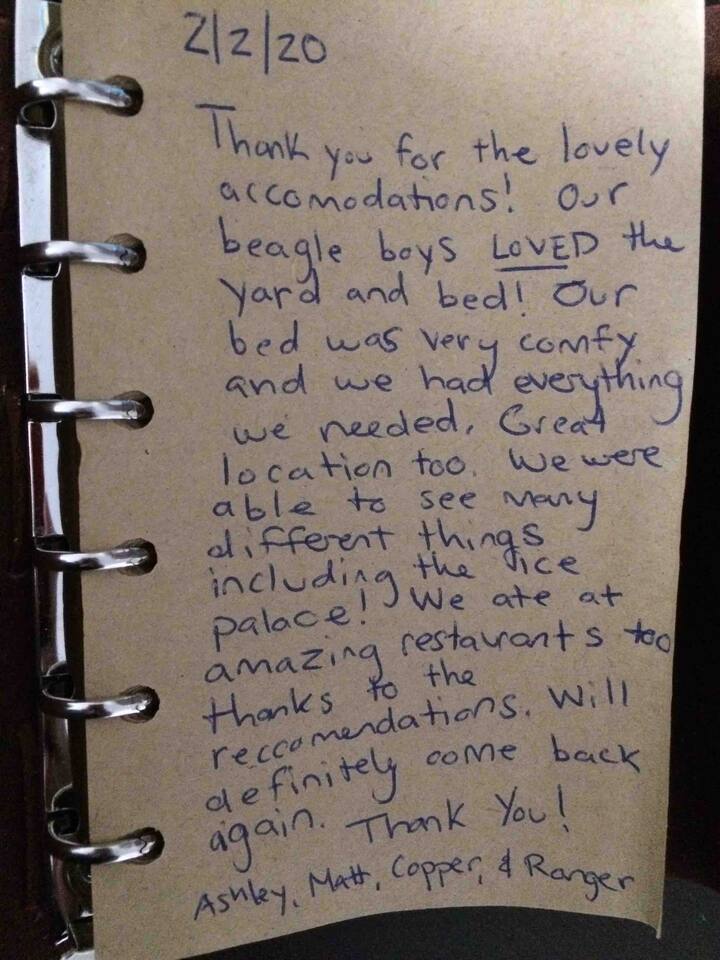 2/2/20
Thank you for the lovely
accomodations! Our
beagle boys LOVED the
yard and bed! Our
bed was very comfy
and we had everything
we needed. Great
location too. We were
able to see many
different things
including the ice
palace! We ate at
amazing restaurants too
thanks to the
reccomendations. Will
definitely come back
again. Thank You!
Ashley, Matt, Copper, & Ranger